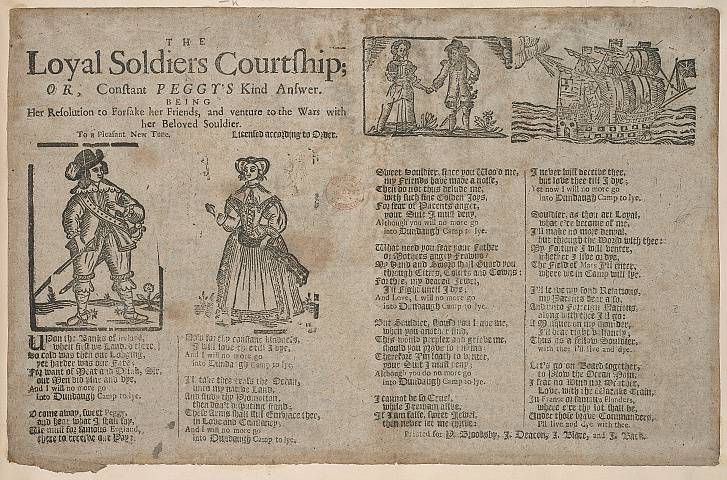 THE
Loyal Soldiers Courtship;
OR, Constant PEGGY'S Kind Answer.
BEING
Her Resolution to Forsake her Friends, and venture to the Wars with
her Beloved Souldier.
To a Pleasant New Tune. Licensed according to Order.
UPon the Banks of Ireland,
when first we Land. d there,
so cold was then our Lodging,
yet harder was our Fare:
For want of Meat and Drink, Sir,
our Men did pine and dye,
And I will no more go
into Dundaugh Camp to lye.
O come away, sweet Peggy,
and hear what I shall say,
We must for famous England,
there to receive our Pay:
Now for thy constant kindness,
I will love thee till I dye,
And I will no more go
into Dundaugh Camp to lye.
I'll take thee o'er the Ocean,
unto my native Land,
And study thy Promotion,
then don't disputing stand;
These Arms shall still Embrace thee,
in Love and Constancy;
And I will no more go
into Dundaugh Camp to lye.
Sweet Souldier, since you Woo'd me,
my Friends have made a noise,
Then do not thus delude me,
with such fine Golden Joys,
For fear of Parents anger,
your Suit I must deny,
Although you will no more go
into Dundaugh Camp to lye.
What need you fear your Father
or Mothers angry Frowns?
My Hand and Sword shall Guard you
through Cities, Courts and Towns:
For thee, my dearest Jewel,
I'll fight until I dye;
And Love, I will no more go
into Dundaugh Camp to lye.
But Souldier, should you leave me,
when you another find,
This would perplex and grieve me,
should you prove so unkind
Therefore I'm loath to venter,
your Suit I must deny;
Although you do no more go
into Dundaugh Camp to lye.
I cannot be so Cruel,
while I remain alive,
If I am false, sweet Jewel,
then never let me thrive:
I never will deceive thee,
but love thee till I dye;
Yet now I will no more go
into Dundaugh Camp to lye.
Souldier, as thou art Loyal,
what e're become of me,
I'll make no more denyal,
but through the World with thee:
My Fortune I will venter,
whether I live or dye,
The Field of Mars I'll enter,
where we in Camp will lye.
I'll leave my fond Relations,
my Parents dear also,
And into Foreign Nations,
along with thee I'll go:
A Musquet on my shoulder,
I'll bear right valiantly,
Thus as a fellow Souldier,
with thee I'll live and dye.
Let's go on Board together,
to plow the Ocean Main,
I fear no Wind nor Weather,
Love, with the Warlike Train,
In France or famous Flanders,
where e're thy lot shall be,
Under those brave Commanders,
I'll live and dye with thee.
Printed for P. Brooksby, J. Deacon, J. Blare, and J. Back.